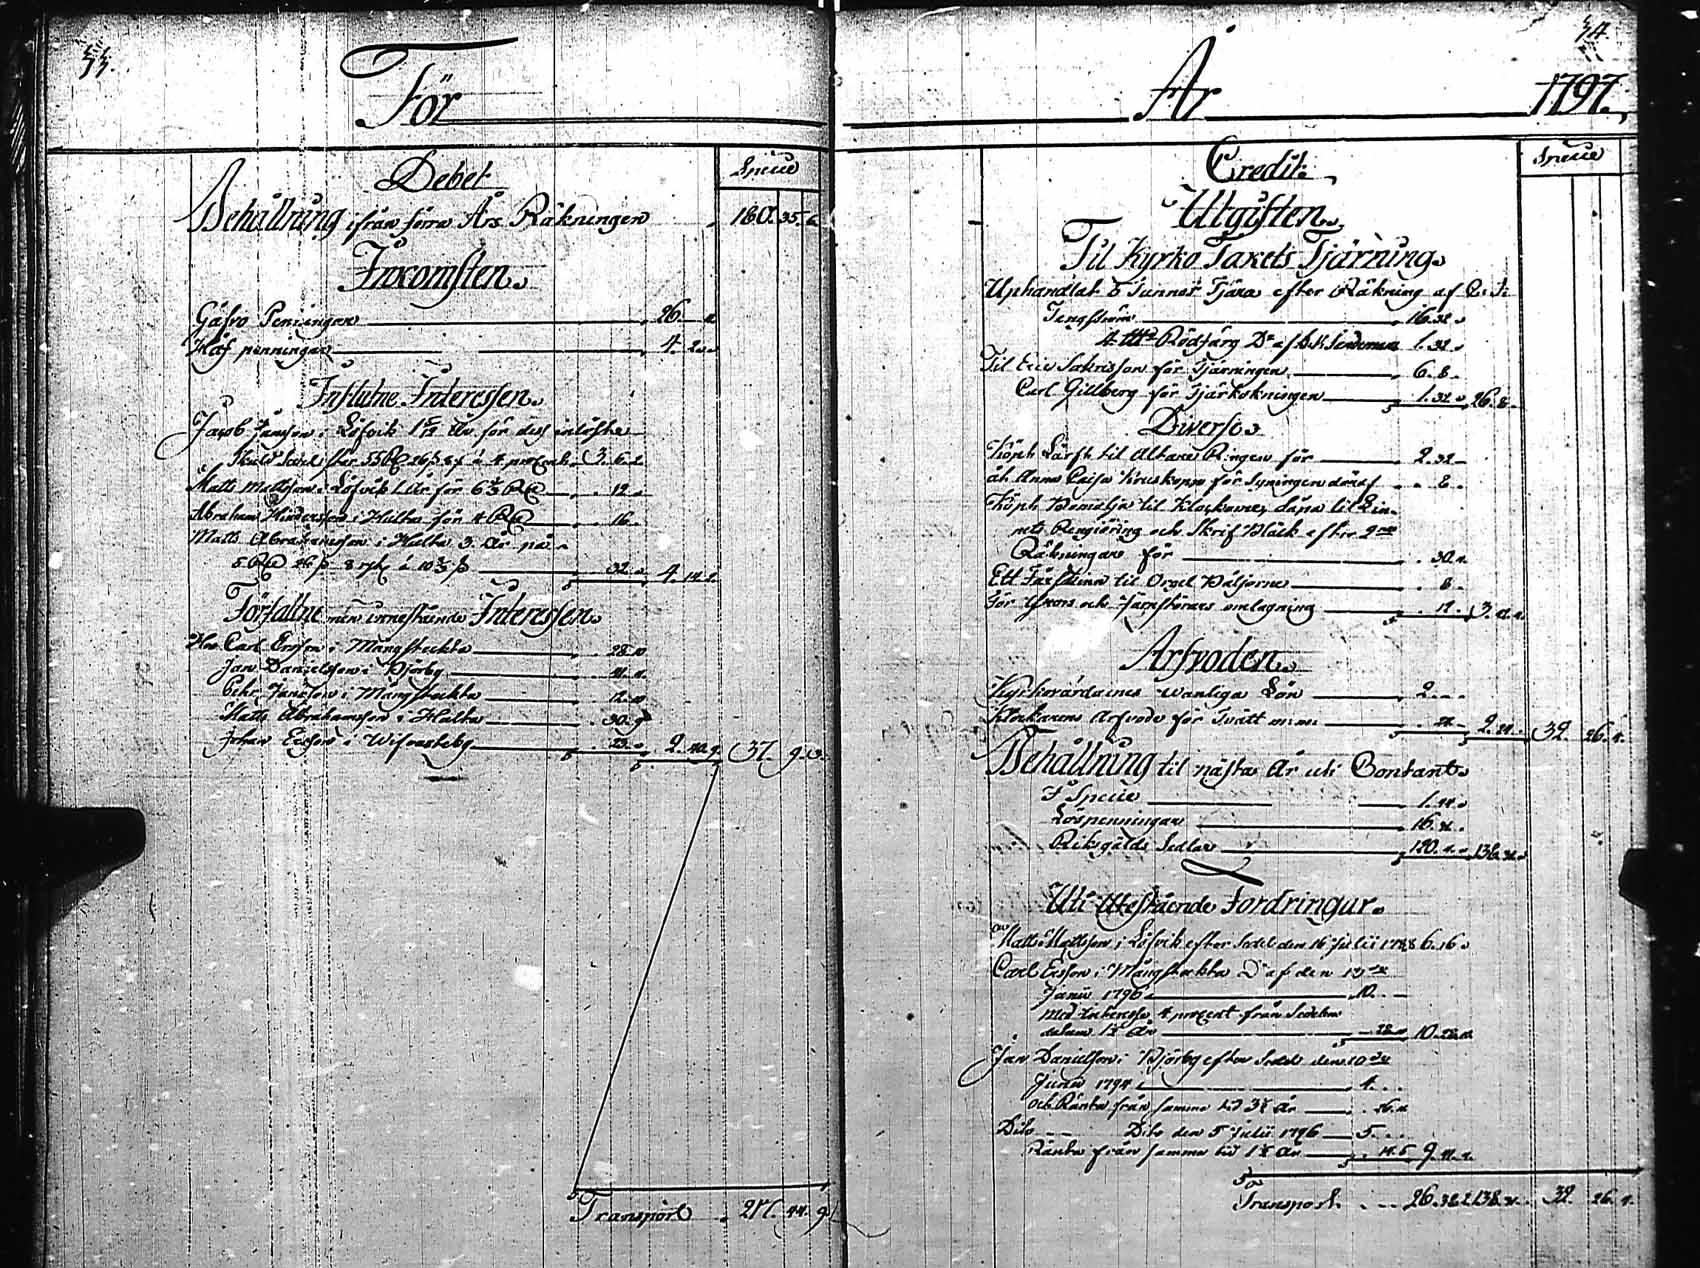 33.
För
Debet
Specie
Behållning ifrån förra Års Räkningen 180. 35. 6
Inkomsten.
Gåfvo Penningar 26
Håf penningar 4. 2.
Influtne Interessen.
Jacob Jansson i Löfvik 1 5/12 År för dess inlöste
Skuld Sedel stor 55 Rd 26 ß 8 r à 4 procent 3. 6. 2.
Matts Mattsson i Löfvik 1 År för 6 1/3 Rd 12
Abraham Hindersson i Hulta för 4 Rd 16
Matts Abrahamsson i Hulta 3. År på
5 Rd 26 ß 8 r à 10 2/3 ß 32. 4. 14. 2.
Förfallne men innestående Interessen.
Hos Carl Ersson i Mångstekta 28
Jan Danielsson i Björby
Pehr Jansson i Mångstekta 12
Matts Abrahamsson i Hulta 30. 9
Johan Ersson i Wifvastaby 23 2. 9. 37. 9.
Transport 217. 44. 9
34.
År 1797.
Credit.
Specie
Utgiften.
Til Kyrko Takets Tjärning.
Uphandlat 5 Tunnor Tjära efter Räkning af
Tengström 16. 32
4 Rödfärg Do af 1. 32
Til Eric Sakrisson för Tjärningen 6. 8.
Carl Gillberg för Tjärkokningen 1. 32 26. 8
Diverse
Köpt Lärft til Altare Ringen för 2. 32
åt Anna Caisa för Syningen deraf 8.
Köpt til Klockorne, såpa til
Rengiöring och Skrif Bläck efter 2ne
Räkningar för 30.
Ett Fårskinn til Orgel Bälgorne 8.
För och omlagning 12. 3.
Arfvoden.
Kyrkovärdarnes vanliga Lön 2.
Klockarens Arfvode för Tvätt m:m: 24. 2. 24. 32. 26.
Behållning til nästa År uti Contant.
I Specie 1.
Löspenningar 16.
Riksgälds Sedlar 120. 138.
Uti Utestående Fordringar.
Matts Mattsson i Löfvik efter Sedel den 16 Julii 1788 6. 16.
Carl Ersson i Mångstekta Do af den
Janu 1796 10.
med Interesse 4 procent från Sedelns
datum År 28 10. 28.
Jan Danielsson i Björby efter Sedel den 10de
Junii 1794 4.
och Ränta från samma tid År 26.
Dito Dito den 5 Julii 1796 5.
Ränta från samma tid År 14. 5 9.
Transport 26. 138. 32. 26.